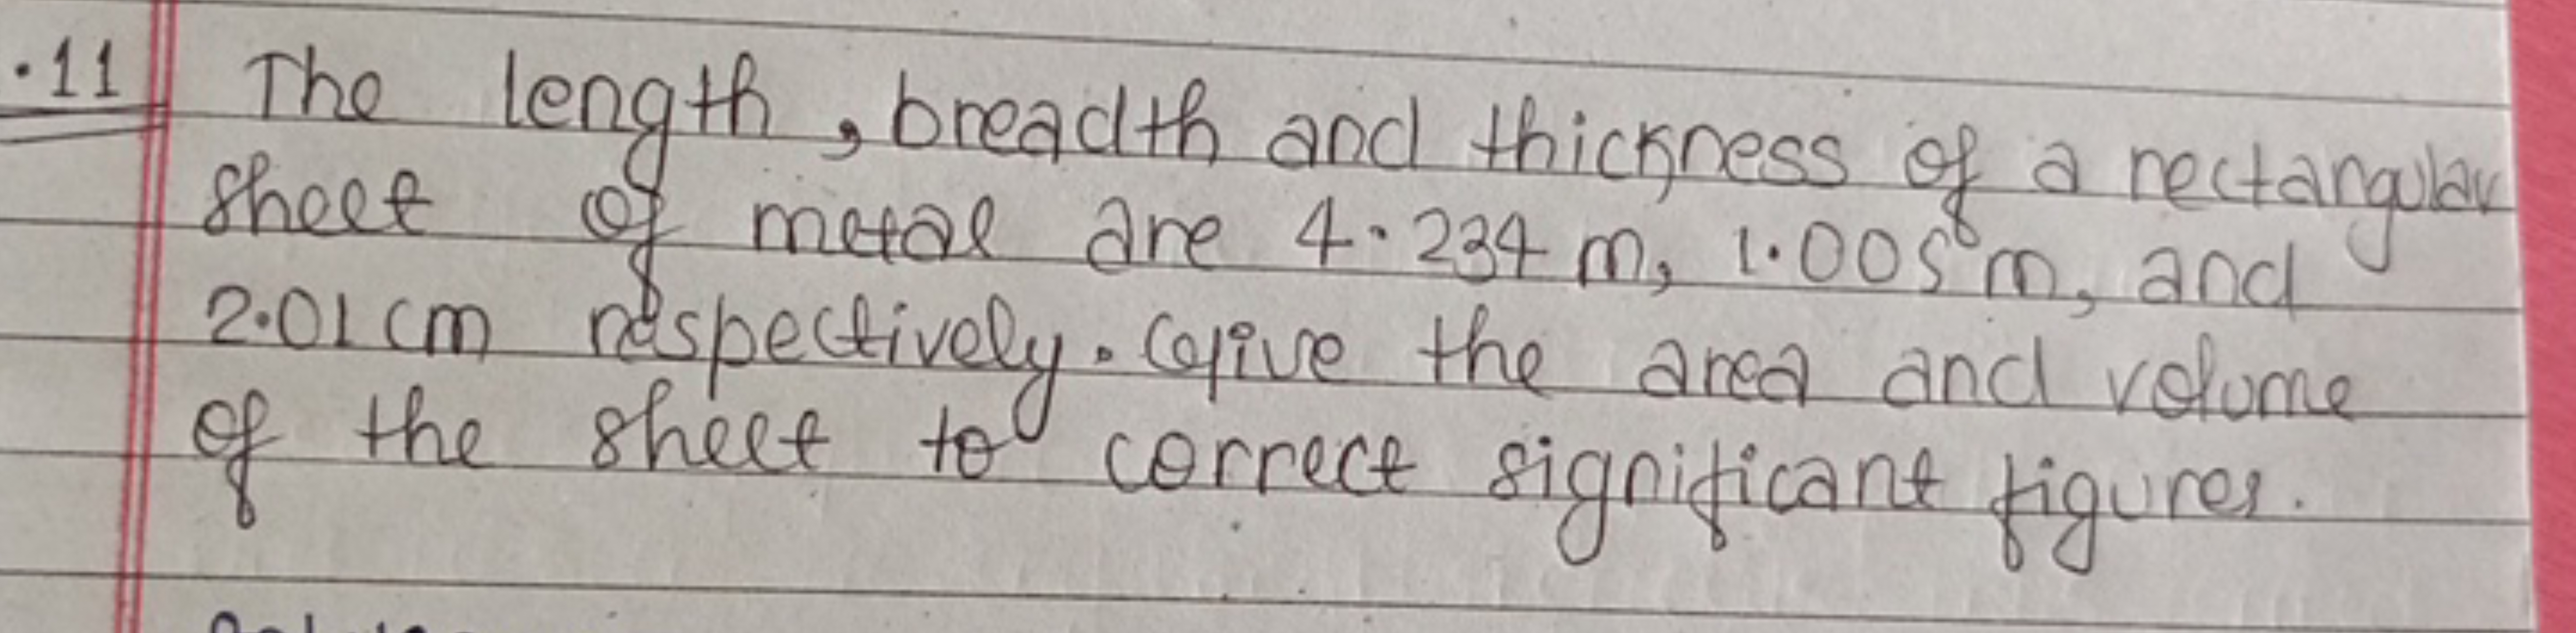 .11 The length, breadth and thickness of a rectangular
sheet of metal are 4.234 m, 1.005 m, and
2.01 cm respectively. Give the area and volume
of the sheet to correct significant figures.